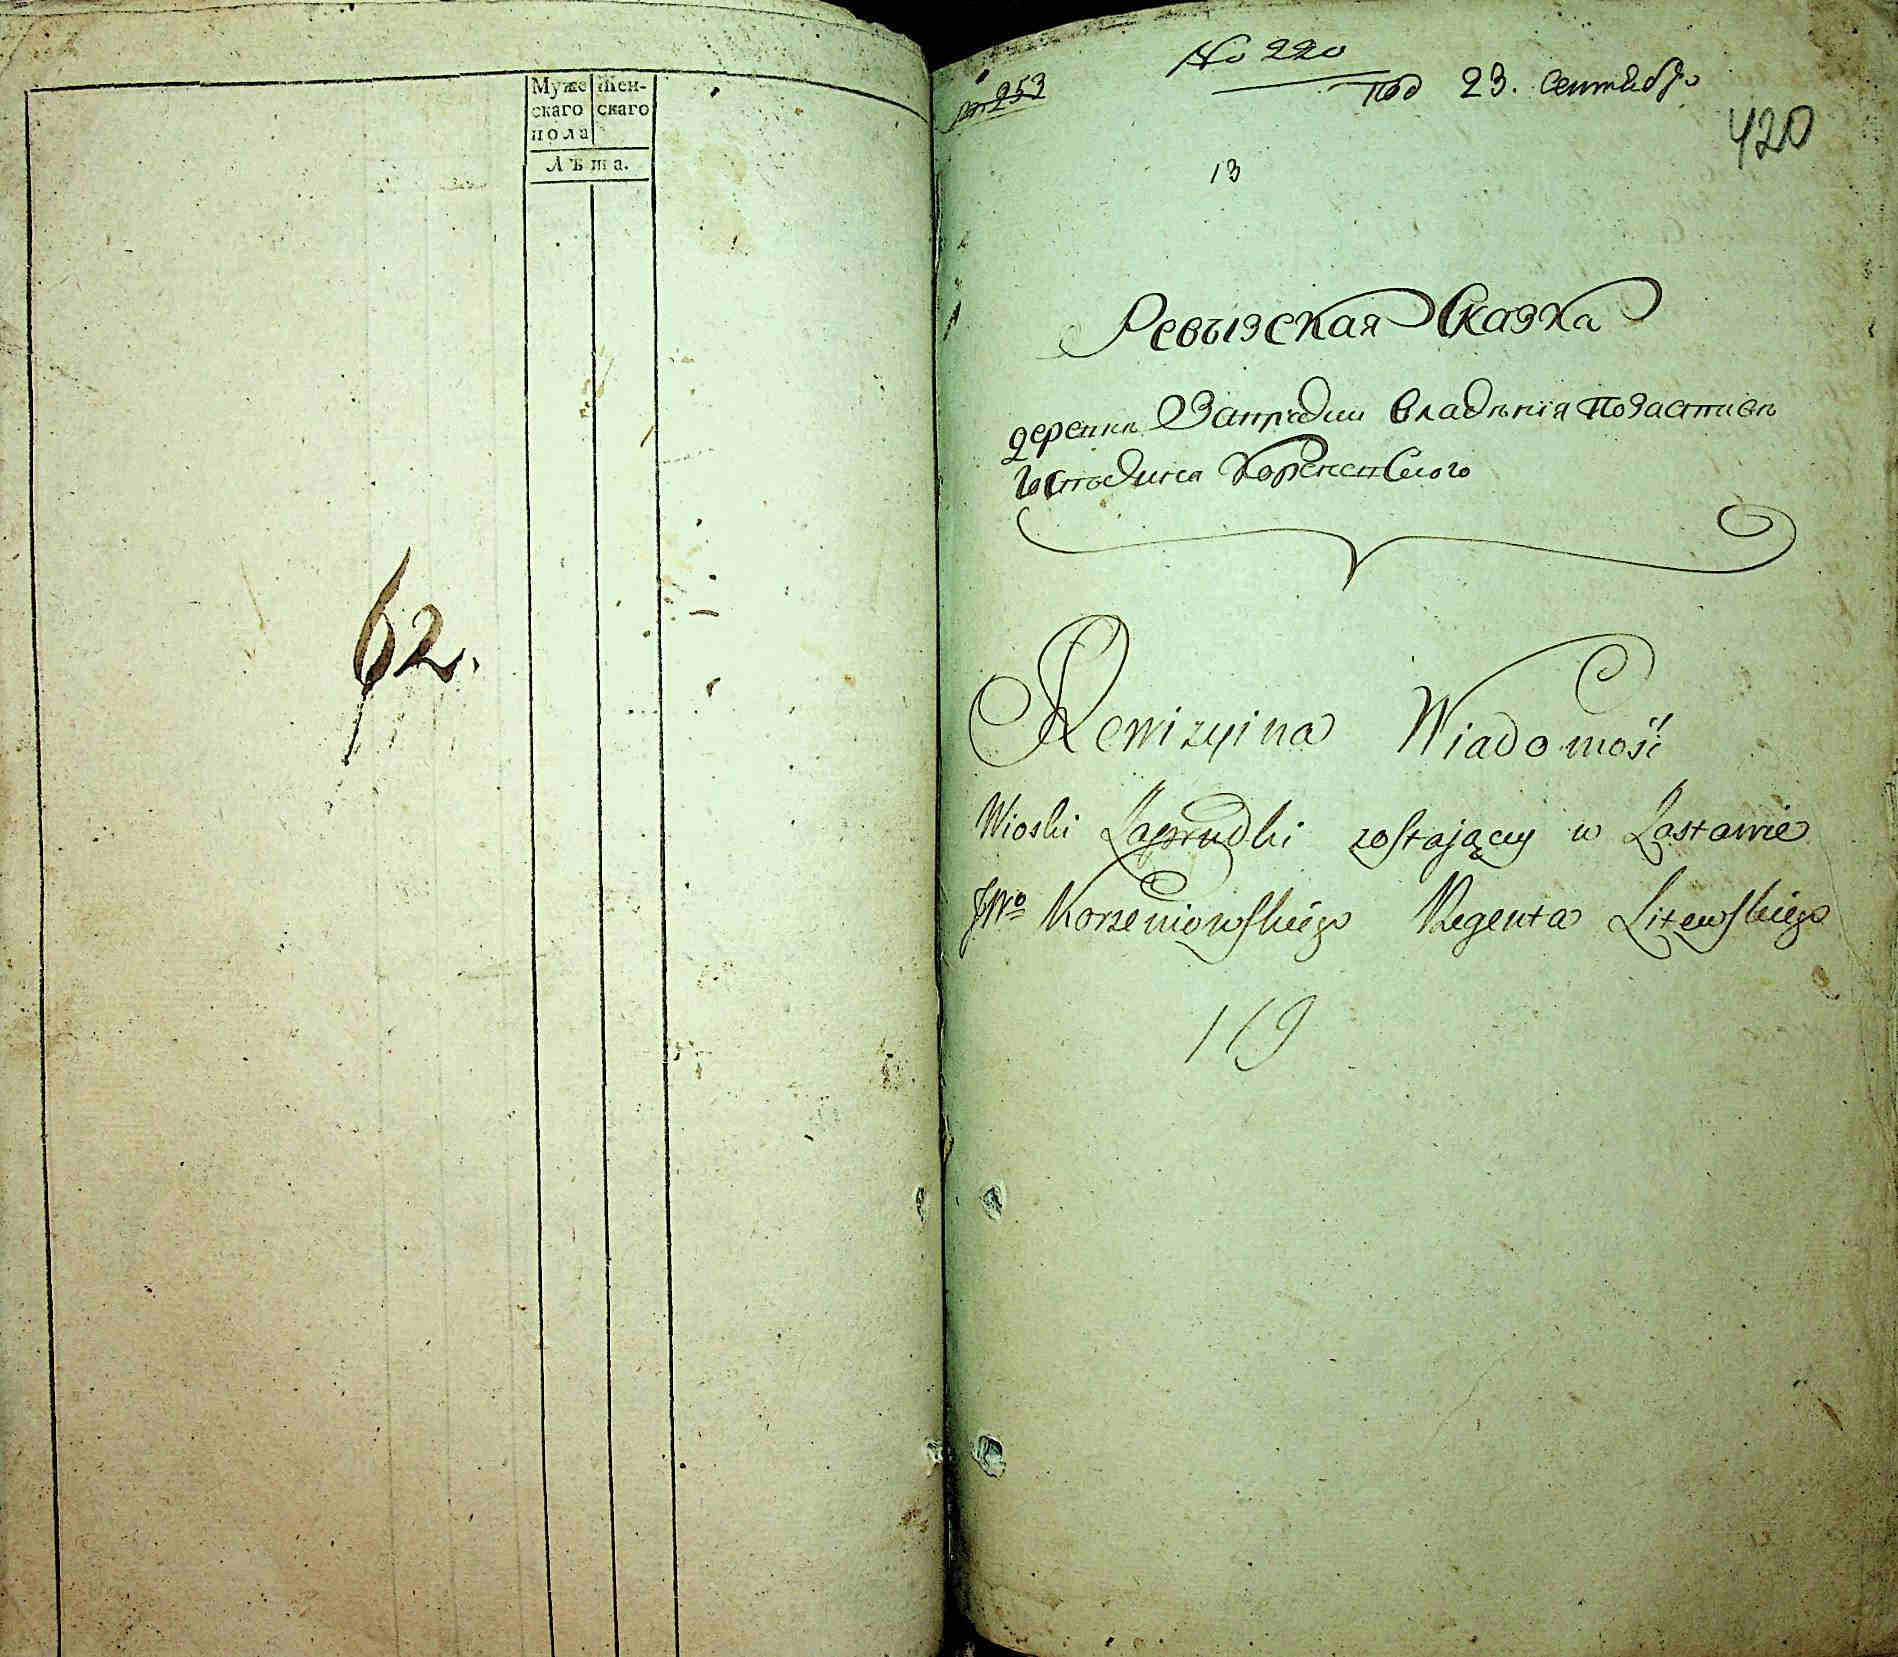 Муже
скаго
пола
Жен-
скаго
Лѣта.
62.
253
No 220
под 23. Сентября
420
13
Ревызская Сказка
деревни Запрудки владѣнія позаставѣ
Господина Корженевского
Rewizyina Wiadomość
Wioski Zaprudki zostający w Zastawie
JWo Korzeniowskiego Regenta Litewskiego
119